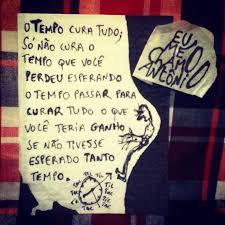 O TEMPO CURA TUDO;
SÓ NÃO CURA O
TEMPO QUE VOCÊ
PERDEU ESPERANDO
O TEMPO PASSAR PARA
CURAR TUDO O QUE
VOCÊ TERIA GANHO
SE NÃO TIVESSE
ESPERADO TANTO
TEMPO.
TIC
TAC
TIC
TAC
EU
ME
CHAMO
ANTÔNIO